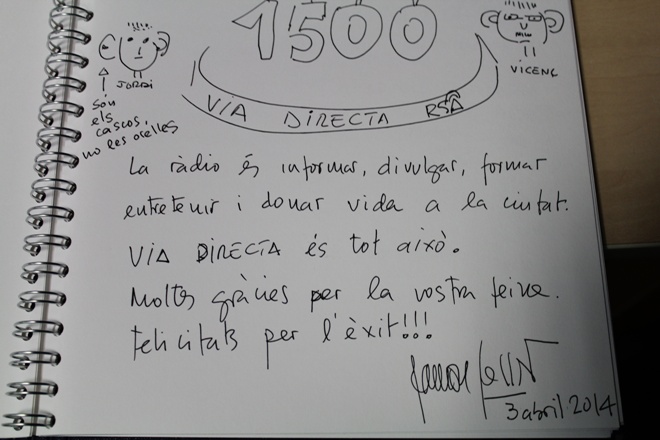 1500
JORDI
VICENÇ
Són
els
cascos,
no les orelles
VIA DIRECTA RSA
La ràdio és informar, divulgar, formar
entretenir i donar vida a la ciutat.
VIA DIRECTA és tot això.
Moltes gràcies per la vostra feina.
Felicitats per l'èxit!!!
3 abril 2014